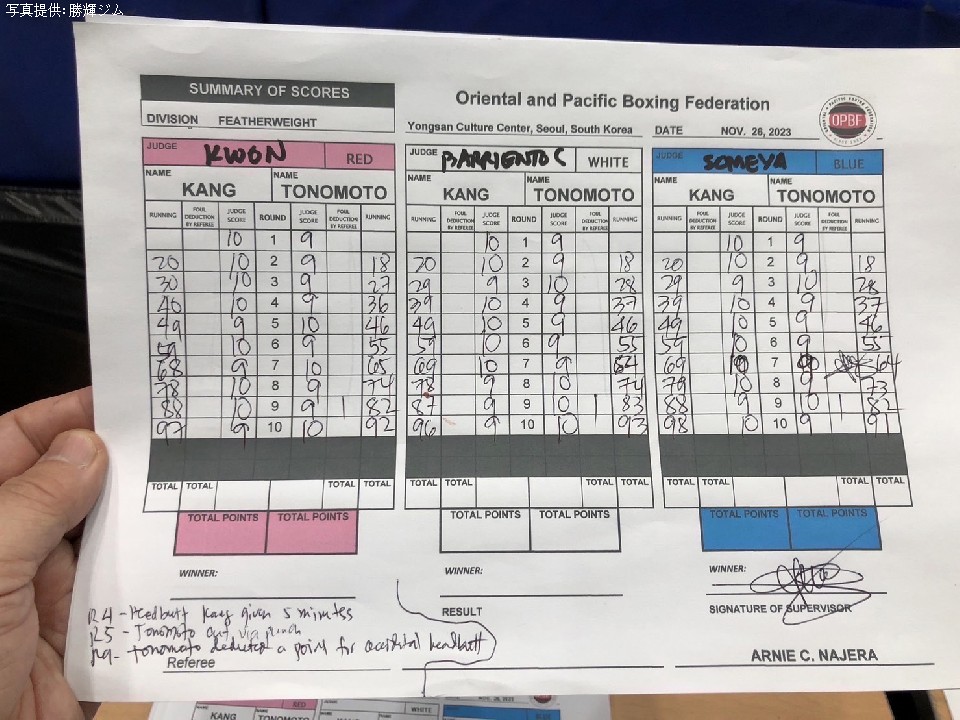 写真提供:勝輝ジム
SUMMARY OF SCORES
DIVISION FEATHERWEIGHT
Oriental and Pacific Boxing Federation
Yongsan Culture Center, Seoul, South Korea DATE NOV. 26, 2023
OPBF
JUDGE KWON RED JUDGE WHITE JUDGE SOMEYA BLUE
NAME KANG NAME TONOMOTO NAME KANG NAME TONOMOTO NAME KANG NAME TONOMOTO
RUNNING FOUL DEDUCTION BY REFEREE JUDGE SCORE ROUND JUDGE SCORE FOUL DEDUCTION BY REFEREE RUNNING RUNNING FOUL DEDUCTION BY REFEREE JUDGE SCORE ROUND JUDGE SCORE FOUL DEDUCTION BY REFEREE RUNNING RUNNING FOUL DEDUCTION BY REFEREE JUDGE SCORE ROUND JUDGE SCORE FOUL DEDUCTION BY REFEREE RUNNING
10 1 9 10 1 9 10 1 9
20 10 2 9 18 20 10 2 9 18 20 10 2 9 18
30 10 3 9 27 29 9 3 10 28 29 9 3 10 28
40 10 4 9 36 39 10 4 9 37 39 10 4 9 37
49 9 5 10 46 49 10 5 9 46 49 10 5 9 46
59 10 6 9 55 59 10 6 9 55 59 10 6 9 55
68 9 7 10 65 69 10 7 9 64 69 7 64
78 10 8 9 74 78 9 8 10 74 79 10 8 9 73
88 10 9 9 1 82 87 9 9 10 1 83 88 9 9 10 1 82
97 9 10 10 92 96 9 10 10 93 98 10 10 9 91
TOTAL TOTAL TOTAL TOTAL TOTAL TOTAL TOTAL TOTAL TOTAL TOTAL TOTAL TOTAL
TOTAL POINTS TOTAL POINTS TOTAL POINTS TOTAL POINTS TOTAL POINTS TOTAL POINTS
WINNER: WINNER: WINNER:
RESULT SIGNATURE OF SUPERVISOR
R4 - Headbutt Kang given 5 minutes
R5 - Tonomoto cut via punch
R9 - Tonomoto deducted a point for accidental headbutt
Referee
ARNIE C. NAJERA
RED WHITE BLUE
KANG TONOMOTO KANG